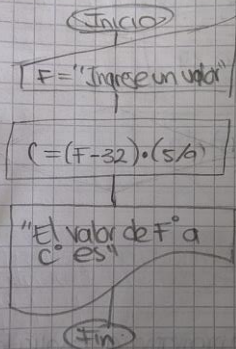 Inicio
F="Ingrese un valor"
C=(F-32)•(5/9)
"El valor de F° a
C° es"
Fin